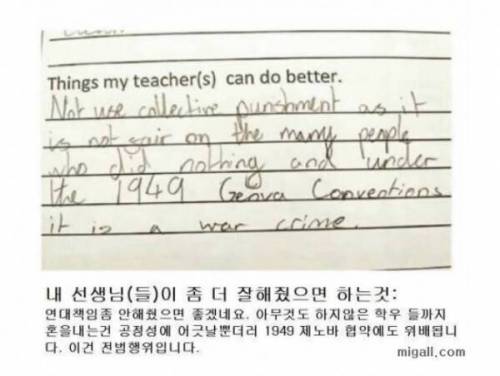 Things my teacher(s) can do better.
Not use collective punshment as it
is not fair on the many people
who did nothing and under
the 1949 Genva Conventions
it is a war crime.
내 선생님(들)이 좀 더 잘해줬으면 하는것:
연대책임좀 안해줬으면 좋겠네요. 아무것도 하지않은 학우 들까지
혼을내는건 공정성에 어긋날뿐더러 1949 제노바 협약에도 위배됩니
다. 이건 전범행위입니다.
migall.com